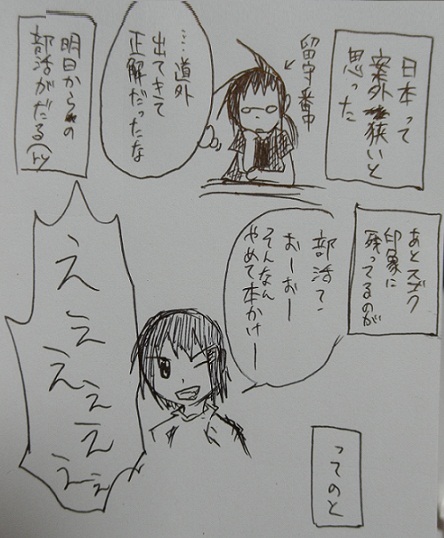 日本って
案外狭いと
思った
留守番中
……道外
出てきて
正解だったな
明日からの
部活がだる(ry
あとスゴク
印象に
残ってるのが
部活で、
おーおー
そんなん
やめて本かけー
えぇえぇえぇぇ
ってのと